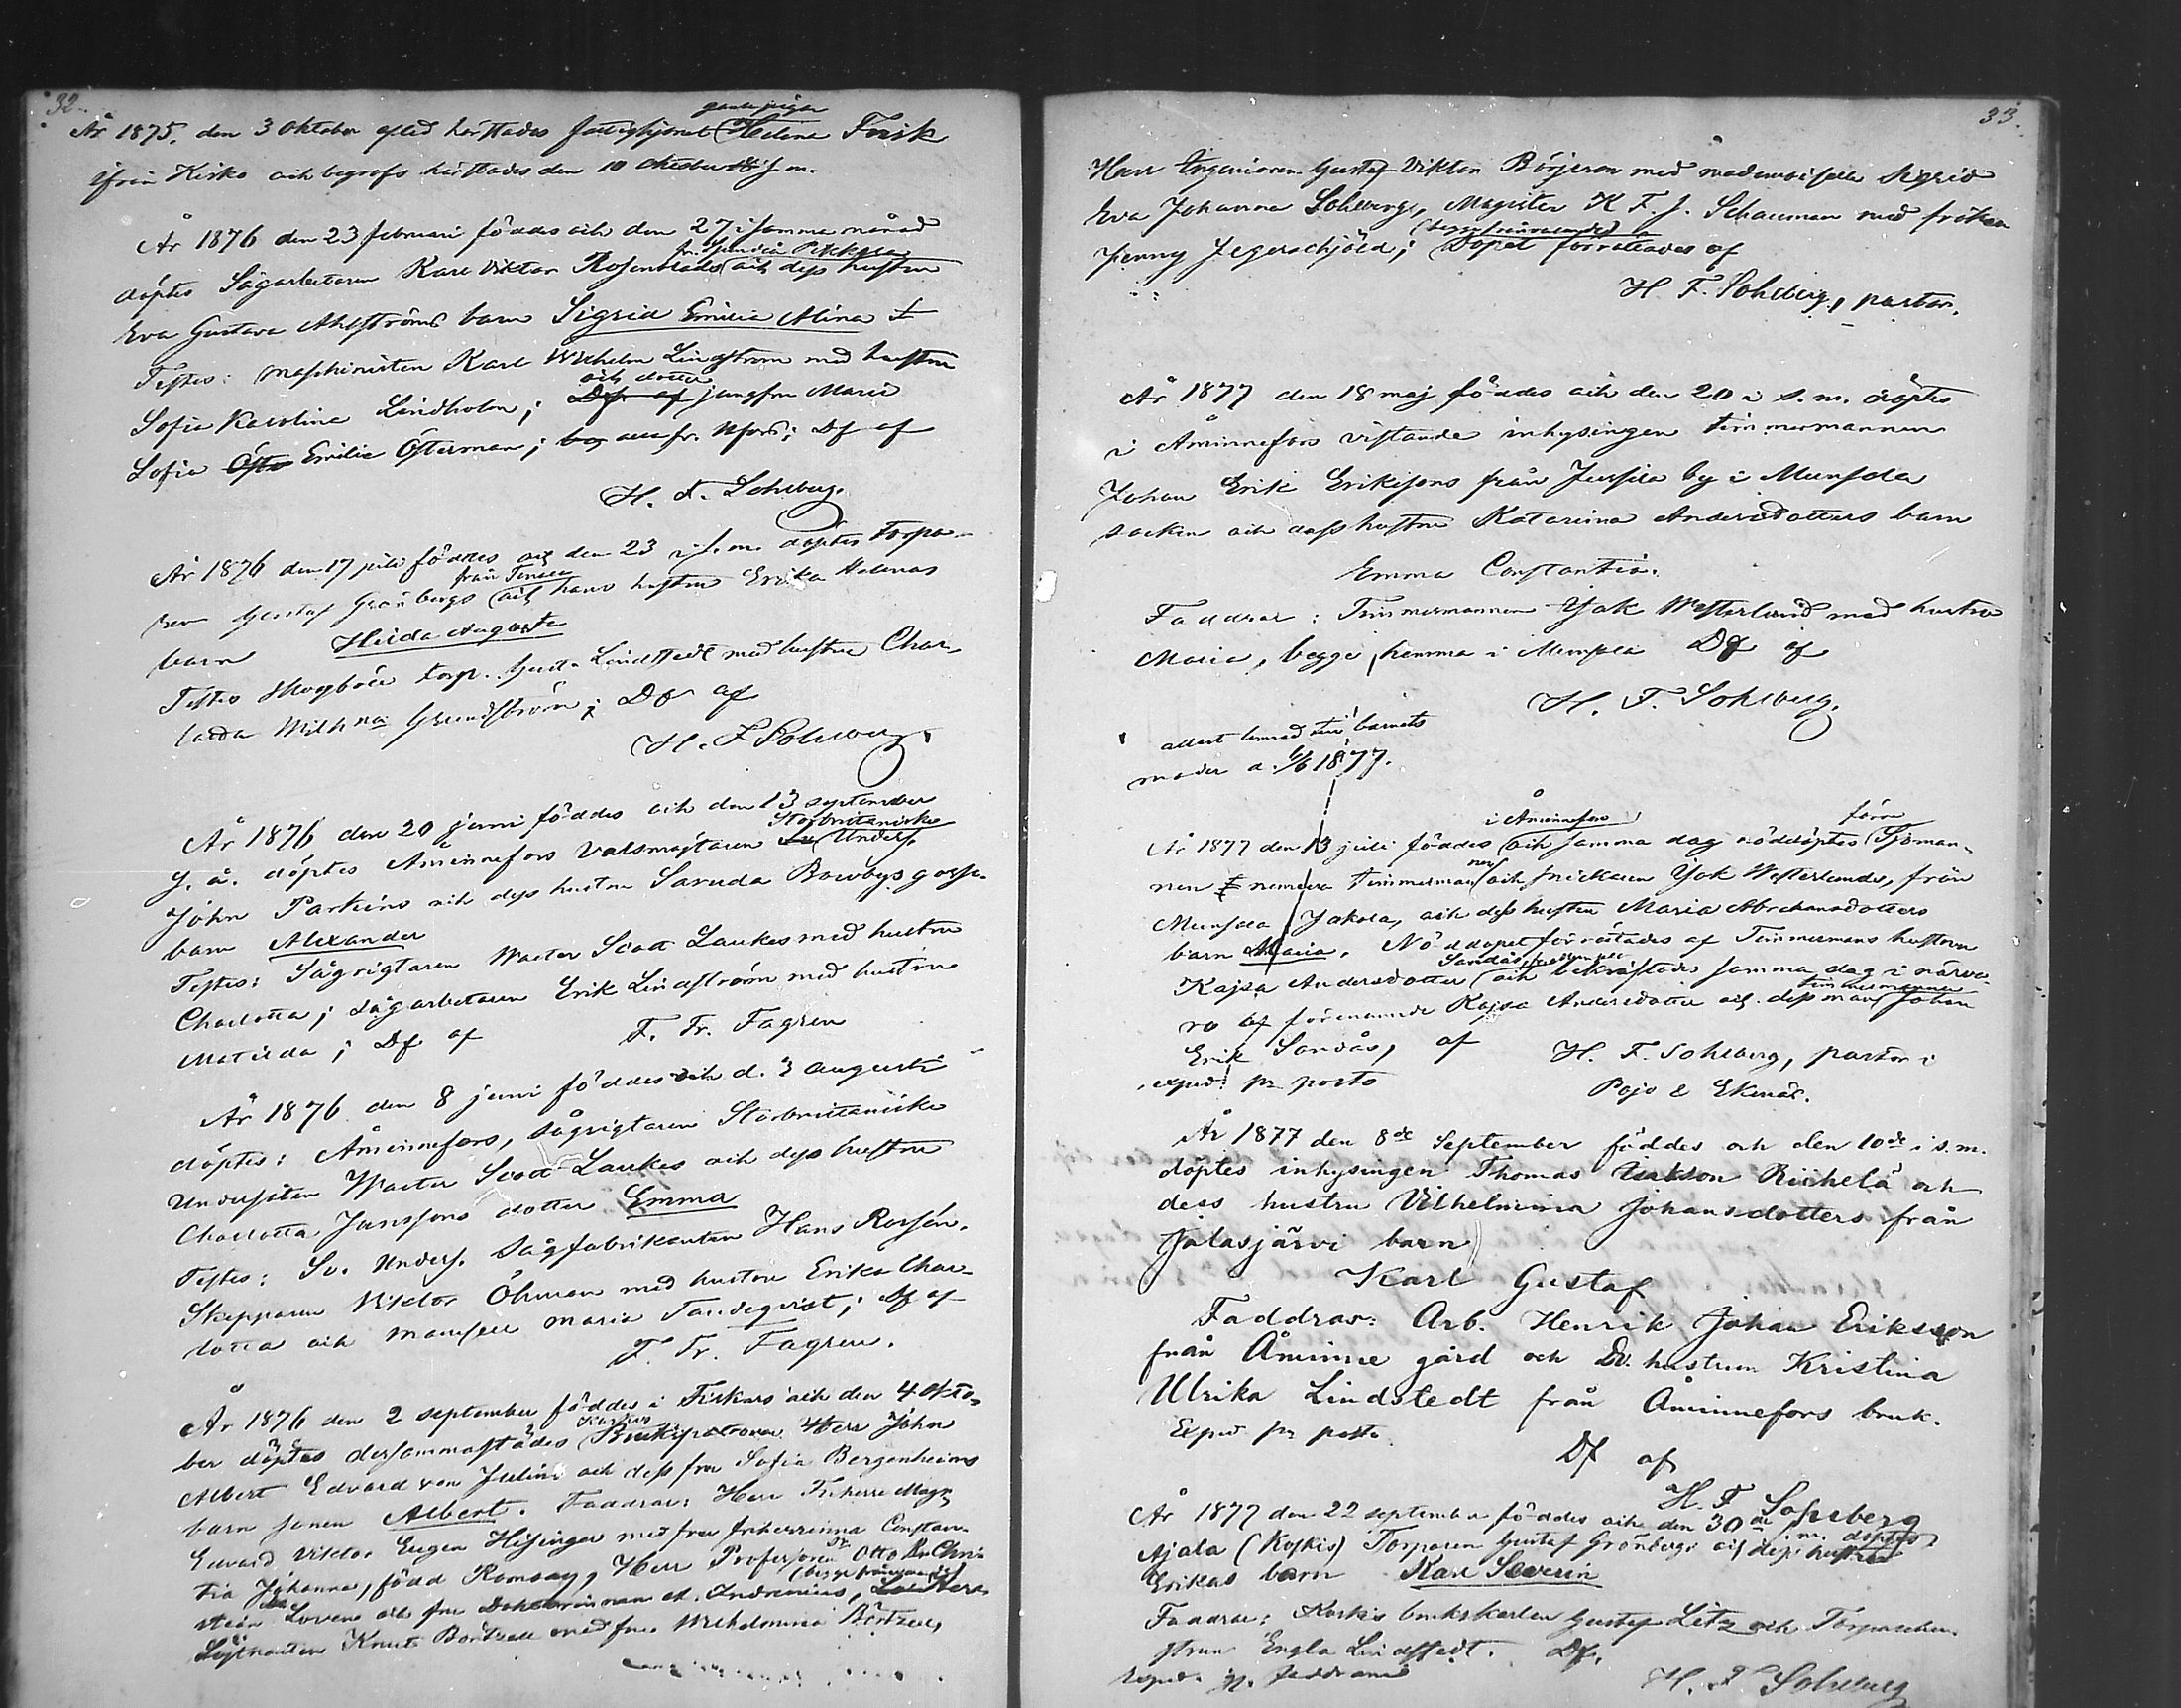 32.
gamla pigan
År 1875. den 3 Oktober afled härstädes fattighjonet Helena Frisk
ifrån Kisko och begrofs härstädes den 10 Oktober i s. m.
År 1876 den 23 februari föddes och den 27 i samma månad
döptes Sågarbetaren Karl Viktor Rosenblads och dess hustru
Eva Gustava Ahlströms barn Sigrid Emilia Alina
Testes: Maschinisten Karl Wilhelm Lindström med hustru
och dotter
Sofia Karolina Lindholm; Df. af jungfru Maria
Sofia Emilia Österman; Df af
H. F. Sohlberg.
År 1876 den 17 juli föddes och den 23 i s. m. döptes torpa-
från
ren Gustaf Grönbergs och hans hustru Erika Helenas
barn Hilda Augusta
Testes Skogböle torp. Gust. Lindstedt med hustru Char-
lotta Wilhna Grundström; Df af
H. F. Sohlberg.
År 1876 den 20 juni föddes och den 13 september
Storbrittaniske
s. å. döptes Åminnefors valsmästaren Unders.
John Parkins och dess hustru Saruda Bowbys gosse-
barn Alexander
Testes: Sågrigtaren Walter Scott Laukes med hustru
Charlotta; sågarbetaren Erik Lindström med hustru
Matilda; Df af
F. Fr. Fagren
År 1876 den 8 juni föddes och d. 3 augusti
döptes: Åminnefors, sågrigtaren Storbrittaniske
Undersåten Walter Scott Laukes och dess hustru
Charlotta Janssons dotter Emma
Testes: Sv. Unders. Sågfabrikanten Hans Rosén.
Skepparen Viktor Öhman med hustru Erika Char-
lotta och mamsell Maria Tandeqvist; Df af
F. Fr. Fagren.
År 1876 den 2 september föddes i Fiskars och den 4 Okto-
ber döptes dersammastädes Brukspatronen Herr John
Albert Edvard von Julins och dess fru Sofia Bergenheims
barn sonen Albert. Faddrar: Herr Friherre Magn.
Edvard Viktor Eugen Hisinger med fru friherrinna Constan-
tia Johanna, född Ramsay, Herr Professoren Dr Otto Chri-
(begge frånvarande)
stian Loven och fru Doktorinnan
Löjtnanten Knut Böitzell med fru Wilhelmina Böitzell,
33.
Herr Ingeniören Gustaf Viktor Börjeson med mademoiselle Sigrid
Eva Johanna Sohlberg, Magister K F. J. Schauman med fröken
(begge frånvarande)
Jenny Jegerschjöld; Dopet förrättades af
H. F. Sohlberg, pastor.
År 1877 den 18 maj föddes och den 20 i s. m. döptes
i Åminnefors vistande inhysingen timmermannen
Johan Erik Eriksons från Jussila by i Munsala
socken och dess hustru Katarina Andersdotters barn
Emma Constantia.
Faddrar: Timmermannen Jak Westerlund med hustru
Maria, begge hemma i Munsala Df af
H. F. Sohlberg.
attest lemnad till barnets
moder d. 6/6 1877.
i Åminnefors förre
År 1877 den 13 juli föddes och samma dag nöddöptes Sjöman-
nen numera timmerman och snickaren Jak Westerlunds, från
Munsala Jakola, och dess hustru Maria Abrahamsdotters
barn Maria. Nöddopet förrättades af Timmermans hustrun
Kajsa Andersdotter och bekräftades samma dag i närva-
timmermannen
ro af förenämnde Kajsa Andersdotter och dess man Johan
Erik Sandås, af
H. F. Sohlberg, pastor i
exped. pr posto
Pojo & Ekenäs.
År 1877 den 8de September föddes och den 10de i s. m.
döptes inhysingen Thomas Erikson Riihelä och
dess hustru Vilhelmina Johansdotters från
Jalasjärvi barn
Karl Gustaf
Faddrar: Arb. Henrik Johan Eriksson
från Åminne gård och Dr. hustrun Kristina
Ulrika Lindstedt från Åminnefors bruk.
Exped pr posto.
Df af
H. F Sohlberg
År 1877 den 22 september föddes och den 30de s. m. döptes
Ajala (Koskis) Torparen Gustaf Grönbergs och dess hustru
Erikas barn Karl Severin
Faddrar: Koskis brukskarlen Gustaf Litz och Torparehu-
strun Engla Lindstedt. Df.
Exped. pr faddrarne
H. F Sohlberg